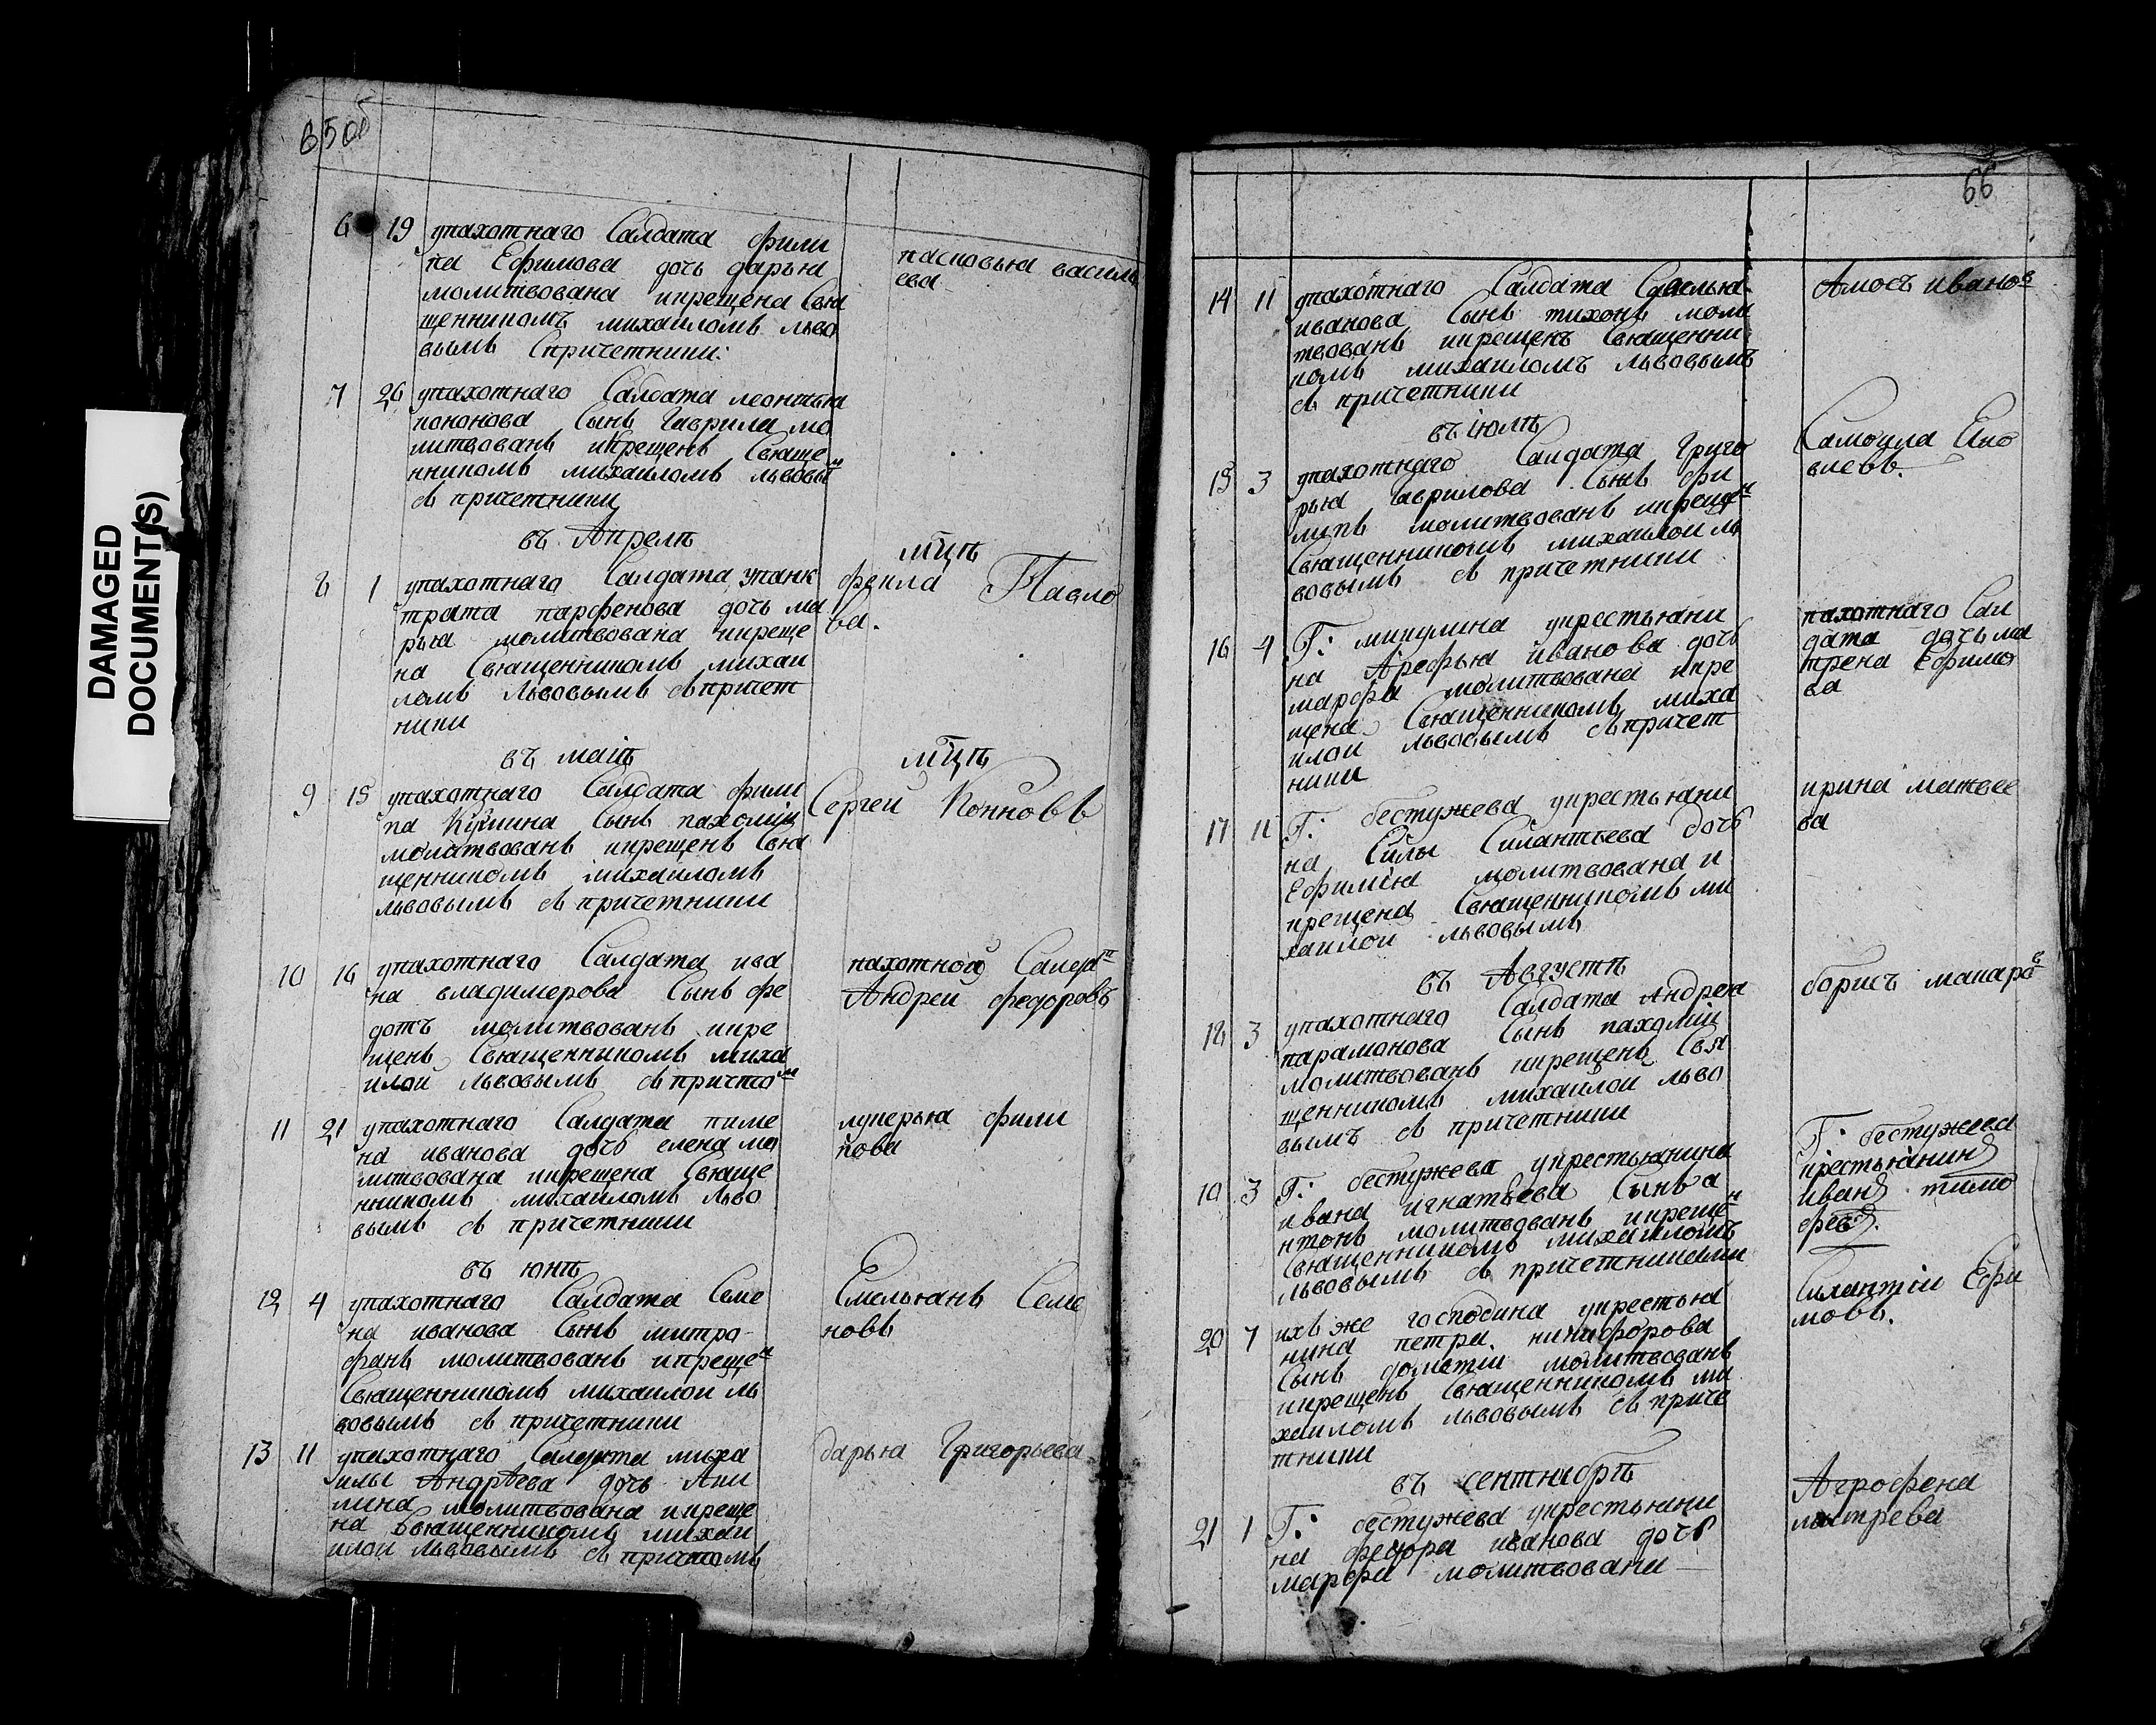 65об
6 19 упахотнаго Салдата фили
па Ефимова дочь дарья
молитвована икрещена Свя
щенникомъ михаиломъ льво
вымъ Спричетники:
пасковья василь
ева
7 26 упахотнаго Салдата леонтья
кононова Сынъ Гаврила мо
литвованъ икрещенъ Свяще
нникомъ михаиломъ львовым
съ причетники
въ Апреле мцѣ
8 1 упахотнаго Салдата упанк
трата парфенова дочь ма
рья молитвована икреще
на Священникомъ михаи
ломъ Львовымъ съпричет
ники
фекла Павло
ва.
въ маіѣ мцѣ
9 15 упахотнаго Салдата фили
па Сынъ пахоміи
молитвованъ икрещенъ Свя
щенникомъ михаиломъ
львовымъ съ причетники
Сергеи Конновъ
10 16 упахотнаго Салдата ива
на владимерова Сынъ фе
дотъ молитвованъ икре
щенъ Священникомъ миха
илои львовымъ съпричтом
пахотной Салдат
Андреи федоровъ
11 21 упахотнаго Салдата пиме
на иванова дочь елена мо
литвована икрещена Свяще
нникомъ михаиломъ Льво
вымъ съ причетники
лукерья фили
пова
въ юнѣ
12 4 упахотнаго Салдата Семе
на иванова Сынъ митро
фанъ молитвованъ икрещен
Священникомъ михаилои ль
вовымъ съ причетники
Емельянъ Семе
новъ
13 11 упахотнаго Салдата миха
илы Андрѣева дочь Аки
лина молитвована икреще
на Священникомъ михаи
илои львовымъ съ причтомъ
дарья Григорьева
66
14 11 упахотнаго Салдата Савелья
иванова Сынъ тихонъ моли
твованъ икрещенъ Священни
комъ михаиломъ львовымъ
съ причетники
Амосъ ивановъ
въ іюлѣ
15 3 упахотнаго Салдата Григо
рья Гаврилова Сынъ фи
липъ молитвованъ икрещен
Священникомъ михаилои ль
вовымъ съ причетники
Самоила Еко
влевъ.
16 4 Г: микулина укрестьяни
на Арефья иванова дочь
марфа молитвована икре
щена Священникомъ миха
илои львовымъ съпричет
ники
пахотнаго Сал
дата дочь ма
трена Ефимо
ва
17 11 Г: бестужева укрестьяни
на Силы Силантьева дочь
Ефимія молитвована и
крещена Священникомъ ми
хаилои львовымъ
ирина матвее
ва
въ Августѣ
18 3 упахотнаго Салдата Андрея
парамонова Сынъ пахоміи
молитвованъ икрещенъ Свя
щенникомъ михаилои льво
вымъ съ причетники
борисъ макаров
19 3 Г: бестужева укрестьянина
ивана игнатьева Сынъ а
нтонъ молитвованъ икрещен
Священникомъ михаиломъ
львовымъ съ причетниками
Г: бестужева
крестьянинъ
иванъ тимо
феевъ.
20 7 ихъ же господина укрестья
нина петра никифорова
Сынъ дометіи молитвованъ
икрещенъ Священникомъ ми
хаиломъ львовымъ съ приче
тники
Силантіи Ефи
мовъ.
въ сентнабрѣ
21 1 Г: бестужева укрестьяни
на федора иванова дочь
марфа молитвована —
Агрофена
митрева
DAMAGED
DOCUMENT(S)